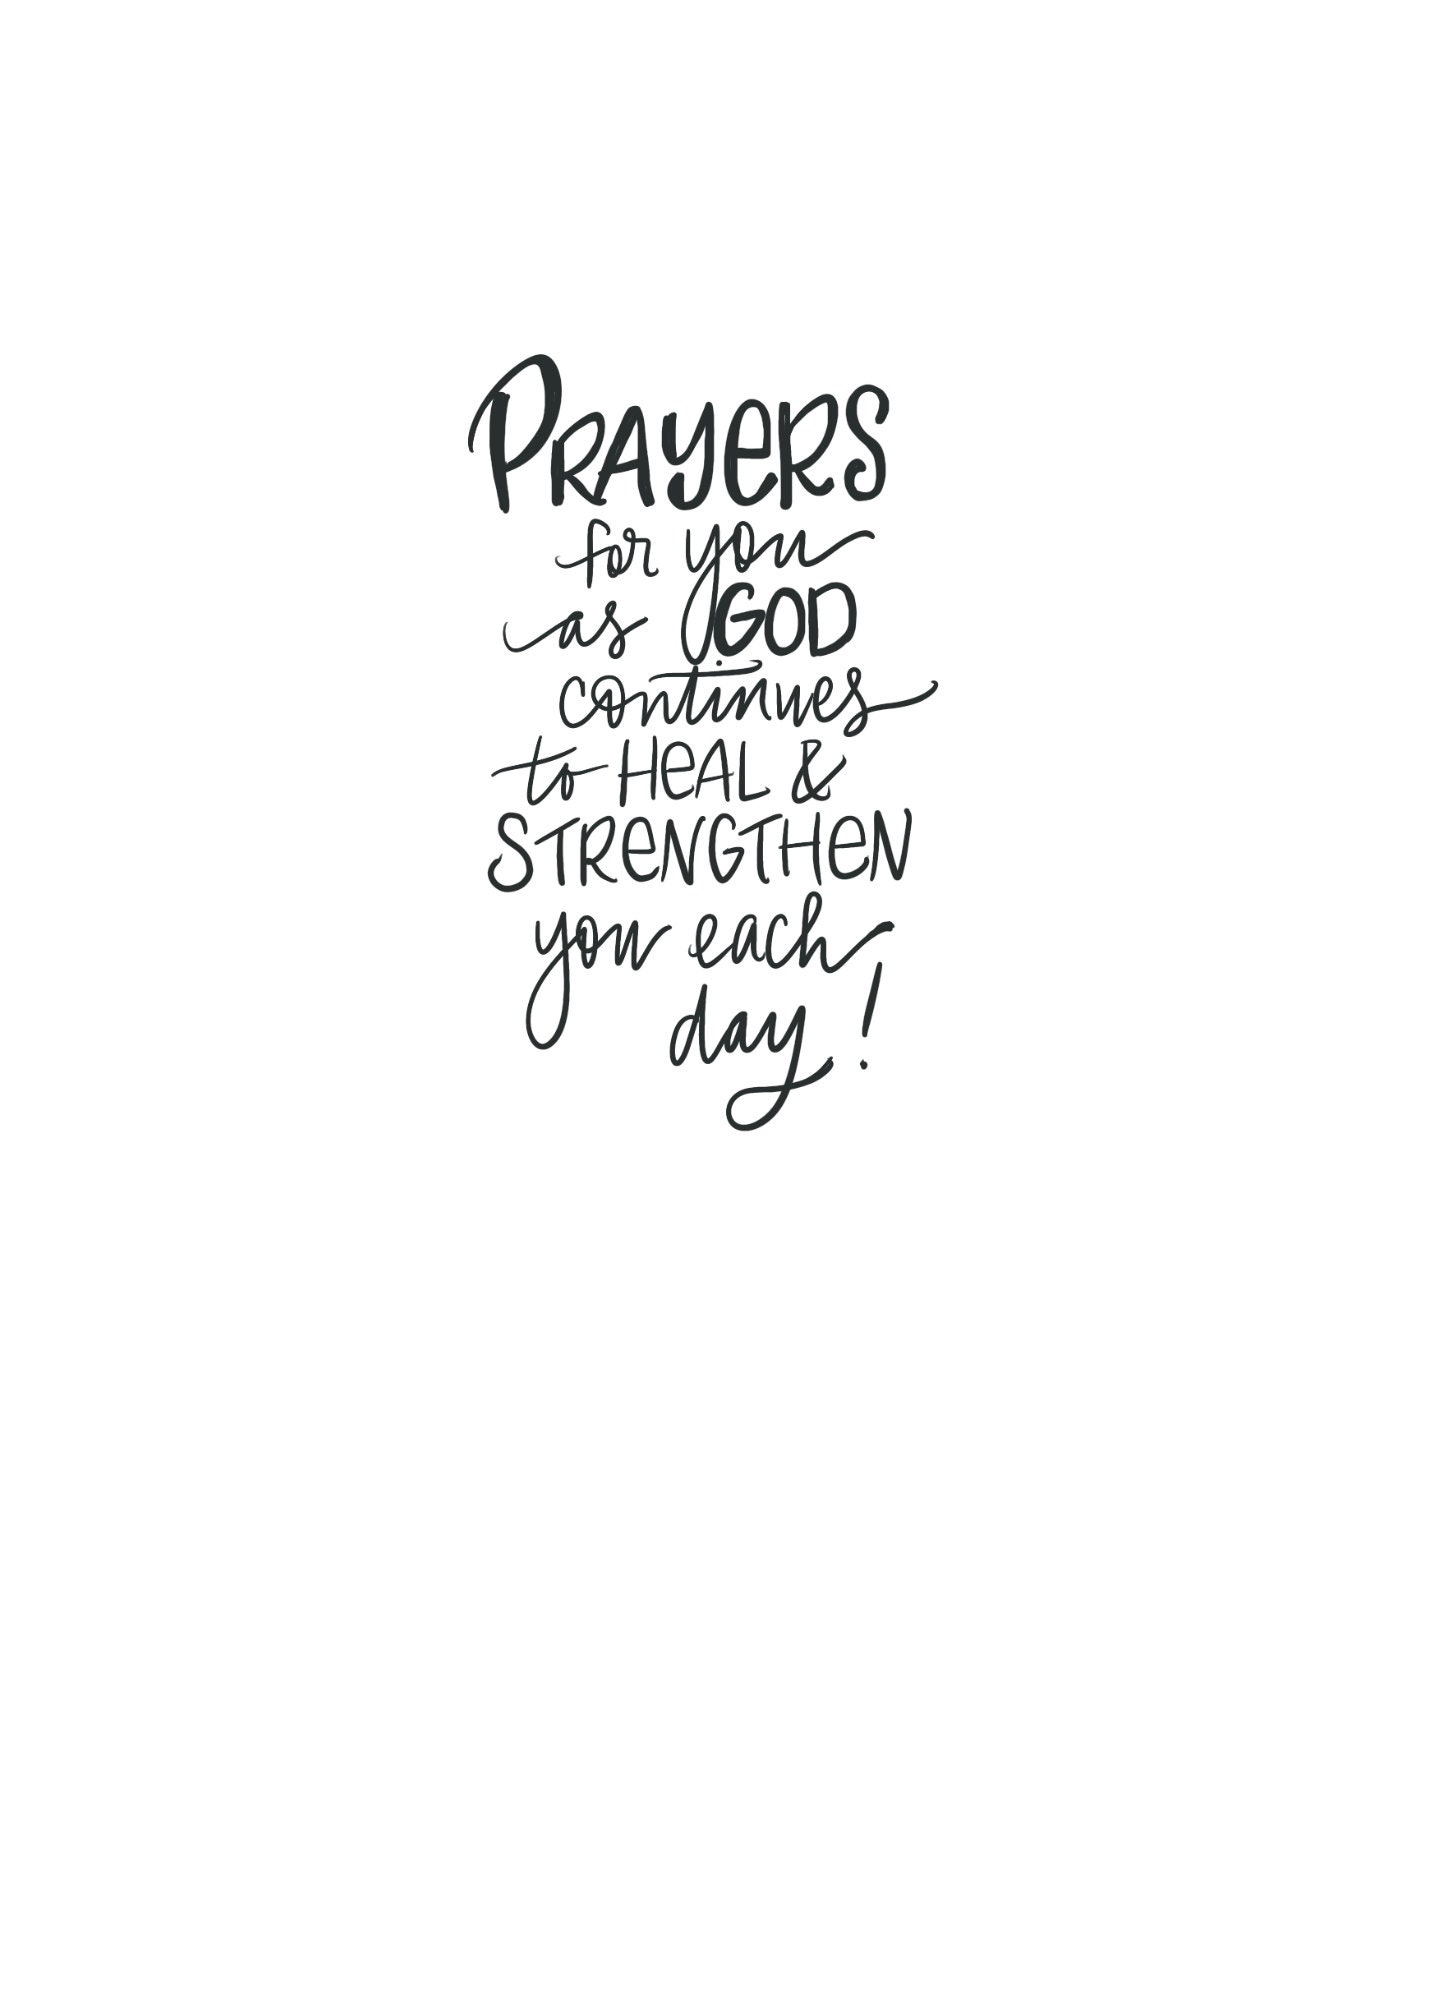 PRAYeRS
for you
as GOD
continues
to HeAL &
STReNGTHeN
you each
day!